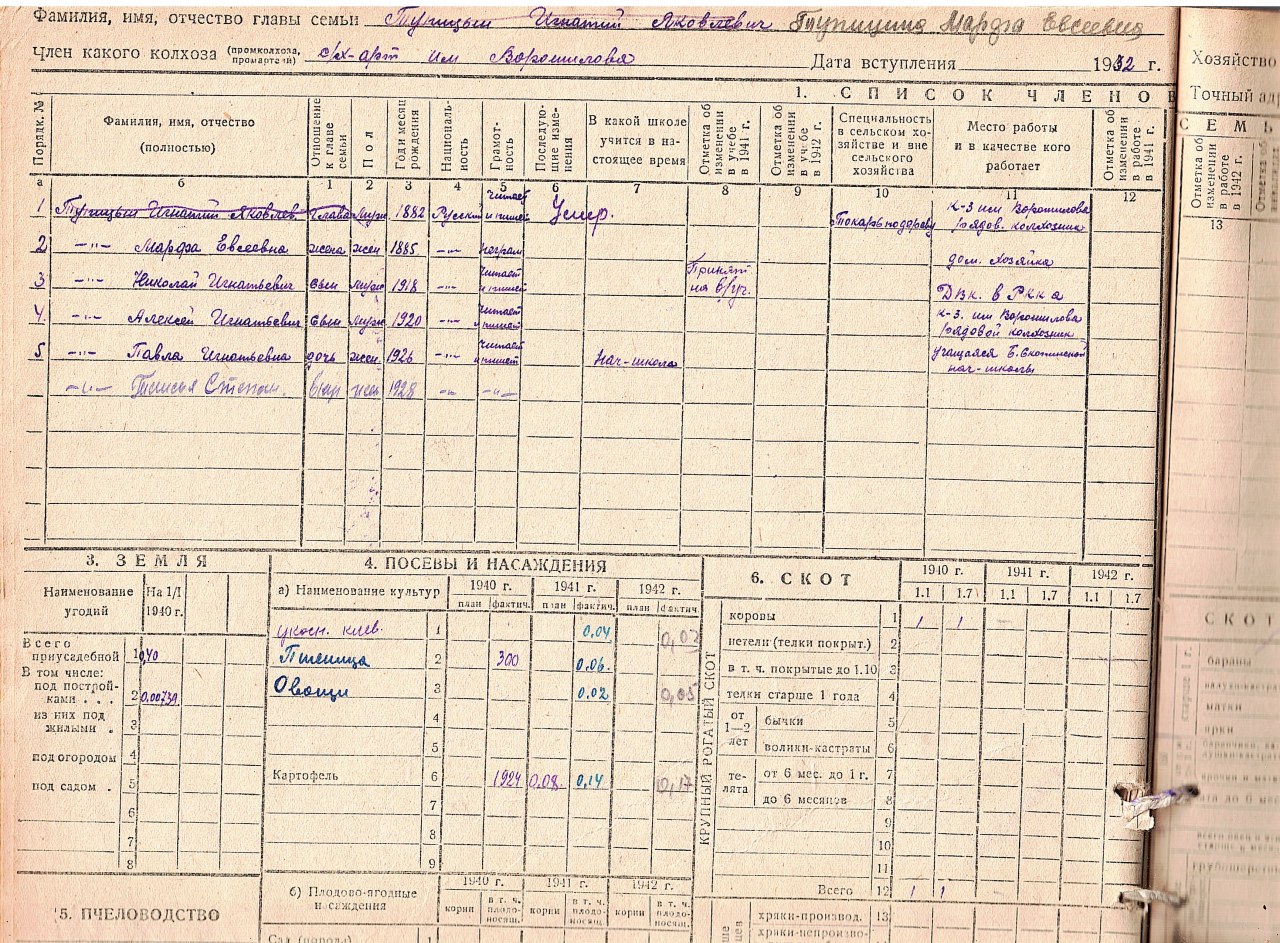 Фамилия, имя, отчество главы семьи Тупицын Игнатий Яковлевич Тупицина Марфа Евсеевна
Член какого колхоза (промколхоза, промартели) с/х-арт им Ворошилова Дата вступления 1932 г.
1. СПИСОК ЧЛЕНОВ
Порядк. №
Фамилия, имя, отчество (полностью)
Отношение к главе семьи
Пол
Годи месяц рождения
Националь-ность
Грамот-ность
Последую-щие изме-нения
В какой школе учится в на-стоящее время
Отметка об изменении в учебе в 1941 г.
Отметка об изменении в учебе в 1942 г.
Специальность в сельском хо-зяйстве и вне сельского хозяйства
Место работы и в качестве кого работает
Отметка об изменении в работе в 1941 г.
а б 1 2 3 4 5 6 7 8 9 10 11 12
1 Тупицын Игнатий Яковлев. глава муж 1882 Русский читает и пишет Умер. Токарь по дереву к-з им Ворошилова рядов. колхозник
2 -"- Марфа Евсеевна жена жен 1885 -"- неграм дом. хозяйка
3 -"- Николай Игнатьевич сын муж 1918 -"- читает и пишет Принят на в/уч. в РККА
4. -"- Алексей Игнатьевич сын муж 1920 -"- читает и пишет к-з. им Ворошилова рядовой колхозник
5 -"- Павла Игнатьевна дочь жен 1926 -"- читает и пишет Нач-школа учащаяся нач-школы
-"- Степан. 1928 -"- -"-
3. ЗЕМЛЯ
Наименование угодий На 1/I 1940 г.
Всего приусадебной 1 0,40
В том числе:
под построй-ками . . . 2 0.00739
из них под жилыми . 3
под огородом 4
под садом . 5
6
7
8
5. ПЧЕЛОВОДСТВО
4. ПОСЕВЫ И НАСАЖДЕНИЯ
а) Наименование культур 1940 г. 1941 г. 1942 г.
план фактич. план фактич. план фактич.
укосн. клев. 1 0.04
Пшеница 2 300 0.06.
Овощи 3 0.02 0,05
4
5
Картофель 6 1924 0,08. 0,14 0,17
7
8
9
б) Плодово-ягодные насаждения 1940 г. 1941 г. 1942 г.
корни в т. ч. плодо-носящ. корни в т. ч. плодо-носящ. корни в т. ч. плодо-носящ.
1
6. СКОТ
1940 г. 1941 г. 1942 г.
1.1 1.7 1.1 1.7 1.1 1.7
КРУПНЫЙ РОГАТЫЙ СКОТ
коровы 1 1 1
нетели (телки покрыт.) 2
в т. ч. покрытые до 1.10 3
телки старше 1 года 4
от 1—2 лет бычки 5
волики-кастраты 6
те-лята от 6 мес. до 1 г. 7
до 6 месяцев 8
9
10
11
Всего 12 1 1
хряки-производ. 13
хряки-непроизво-
Хозяйство
Точный
СЕМЬ
Отметка об изменении в работе в 1942 г.
13
СКОТ
бараны
матки
ярки